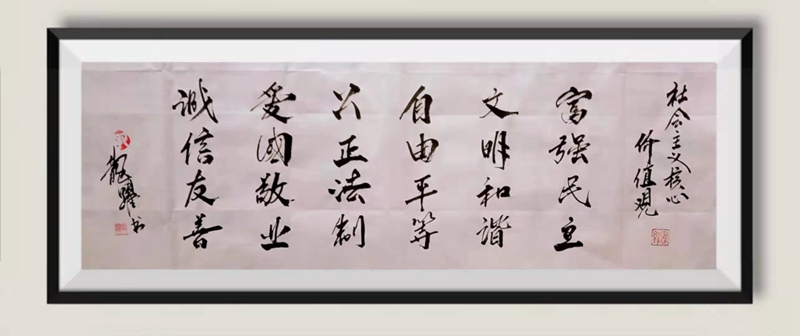 社会主义核心
价值观
富强民主
文明和谐
自由平等
公正法制
爱國敬业
诚信友善
书